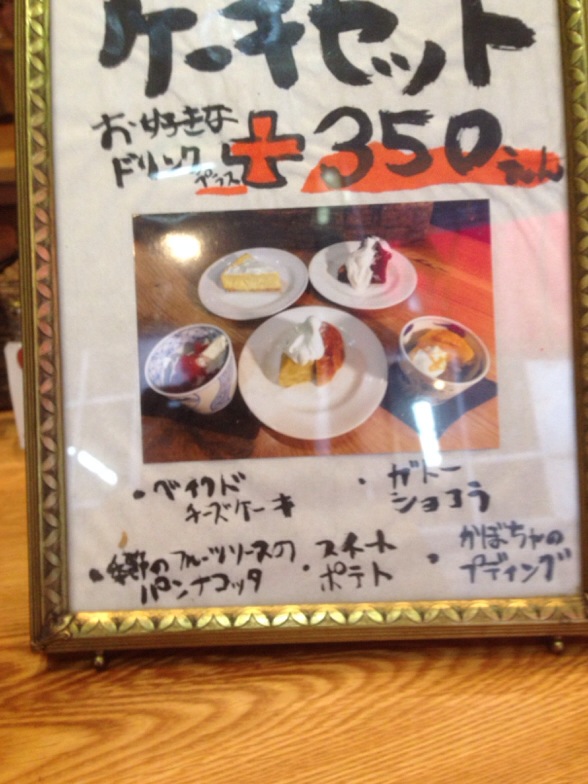 ケーキセット
お好きな
ドリンク
プラス
+350えん
・ベイクド
チーズケーキ
・ガトー
ショコラ
・季節のフルーツソースの
パンナコッタ
・スイート
ポテト
・かぼちゃの
プディング